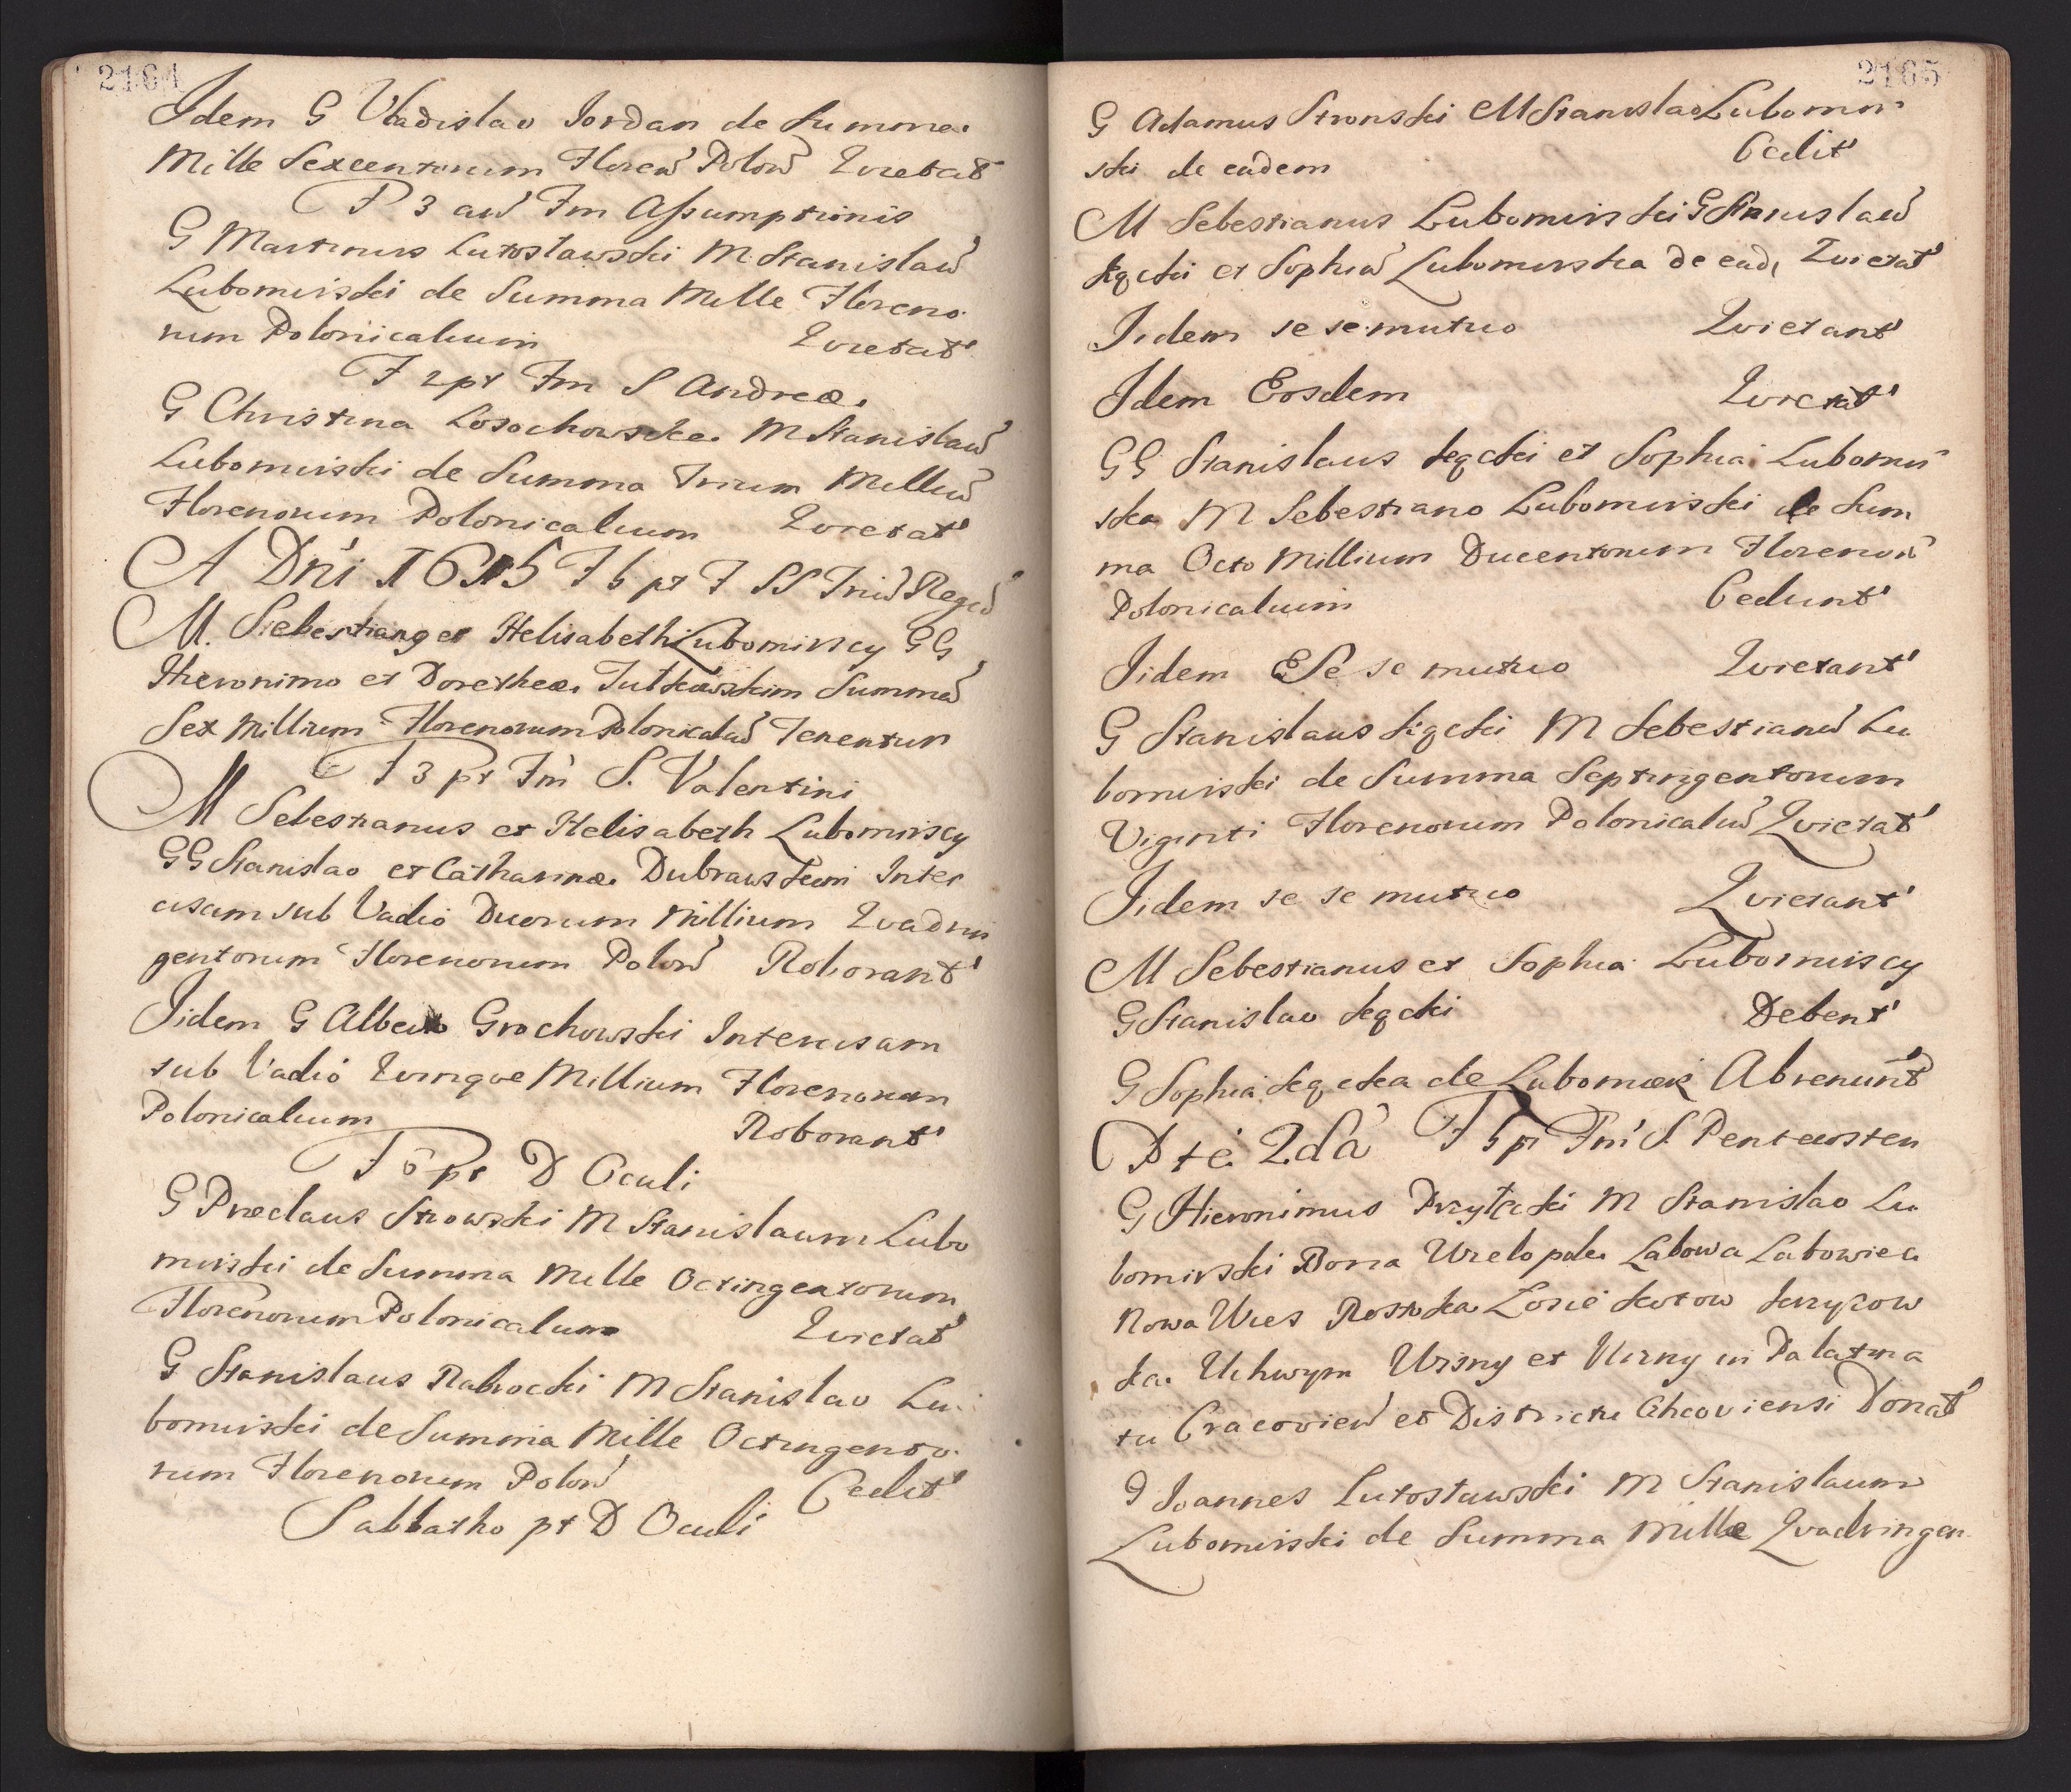 2164
Idem G Vladislao Iordan de Summa
Mille Sexcentorum Floren Polon Qvietat
F 3 an Fm Assumptionis
G Martinus Lutosławski M Stanislau
Lubomirski de Summa Mille Floreno
rum Polonicalium Qvietat
F 2 pt Fm S Andreæ
G Christina Losochowska M Stanislau
Lubomirski de Summa Trium Milliu
Florenorum Polonicalium Qvietat
A Dni 1615 F 6 pt F SS Triu Regu
M. Siebestiang et Helisabeth Lubomirscy GG
Hieronimo et Dorethea Jutkowskim Summa
Sex Millium Florenorum Polonicaliu Tenentur
F 3 pt Fm S. Valentini
M Sebestianus et Helisabeth Lubomirscy
GG Stanislao et Catharinæ Dubrawskim Inter
cisam sub Vadio Duorum Millium Qvadrin
gentorum Florenorum Polon Roborant
Iidem G Alberto Grochowski Intercisam
sub Vadio Qvinqve Millium Florenorum
Polonicalium Roborant
F 6 pt D Oculi
G Præclaus Strowski M Stanislaum Lubo
mirski de Summa Mille Octingentorum
Florenorum Polonicalium Qvietat
G Stanislaus Rabrocki M Stanislao Lu
bomirski de Summa Mille Octingento
rum Florenorum Polon Cedit
Sabbatho pt D Oculi
2165
G Adamus Stronski M Stanislao Lubomir
ski de eadem Cedit
M Sebestianus Lubomirski G Stanislau
Kęcki et Sophia Lubomirska de ead Qvietat
Iidem se se mutuo Qvietant
Idem Eosdem Qvietat
GG Stanislaus Kęcki et Sophia Lubomir
ska M Sebestiano Lubomirski de Sum
ma Octo Millium Ducentorum Florenor
Polonicalium Cedunt
Iidem Se se mutuo Qvietant
G Stanislaus Kęcki M Sebestianu Lu
bomirski de Summa Septingentorum
Viginti Florenorum Polonicaliu Qvietat
Iidem se se mutuo Qvietant
M Sebestianus et Sophia Lubomirscy
G Stanislao Kęcki Debent
G Sophia Kęcka de Lubomierz Abrenunt
P te 2da F 5 pt Fm S Pentecosten
G Hieronimus Przyłęcki M Stanislao Lu
bomirski Bona Wielopole Labowa Labowiec
Nowa Wies Rostoka Losie Kotow Krzyzow
ka Uchwym Wisny et Nizny in Palatina
tu Cracovien et Districtu Chcoviensi Donat
G Ioannes Lutosławski M Stanislaum
Lubomirski de Summa Mille Qvadringen